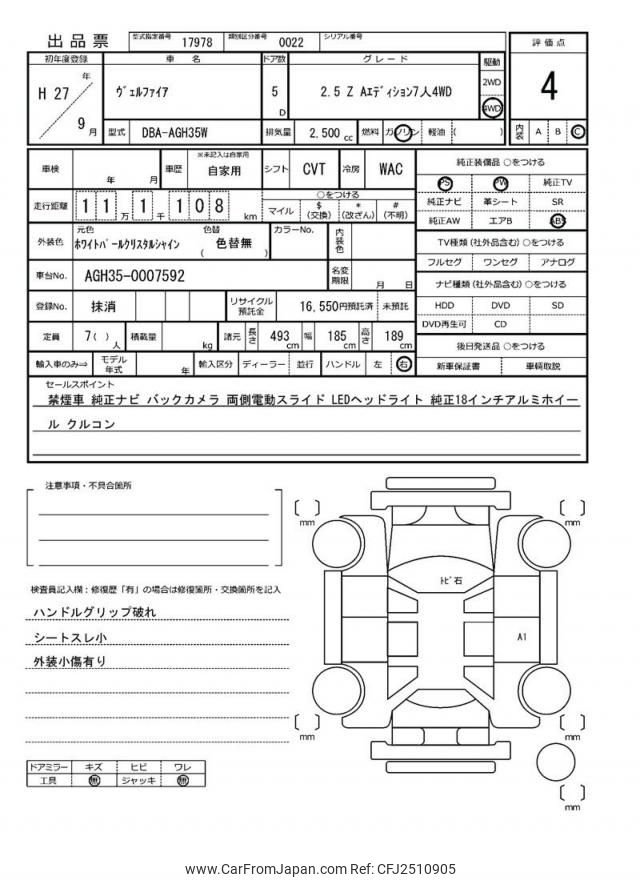 出品票 型式指定番号 17978 類別区分番号 0022 シリアル番号
評価点
4
内装 A B C
初年度登録 車名 ドア数 グレード 駆動
H 27 年 9 月 ヴェルファイア 5 D 2.5 Z Aエディション7人4WD 2WD 4WD
型式 DBA-AGH35W 排気量 2,500 cc 燃料 ガソリン 軽油 ( )
車検 年 月 車歴 ※未記入は自家用 自家用 シフト CVT 冷房 WAC
走行距離 1 1 万 1 千 1 0 8 km ○をつける
マイル $ (交換) * (改ざん) # (不明)
外装色 元色 ホワイトパールクリスタルシャイン 色替 ( 色替無 ) カラーNo. 内装色
車台No. AGH35-0007592 名変期限 月 日
登録No. 抹消 リサイクル預託金 16,550円預託済 未預託
定員 7 ( ) 人 積載量 kg 諸元 長さ 493 cm 幅 185 cm 高さ 189 cm
輸入車のみ⇒ モデル年式 年 輸入区分 ディーラー 並行 ハンドル 左 右
純正装備品 ○をつける
PS PW 純正TV
純正ナビ 革シート SR
純正AW エアB ABS
TV種類 (社外品含む) ○をつける
フルセグ ワンセグ アナログ
ナビ種類 (社外品含む) ○をつける
HDD DVD SD
DVD再生可 CD
後日発送品 ○をつける
新車保証書 車輌取説
セールスポイント
禁煙車 純正ナビ バックカメラ 両側電動スライド LEDヘッドライト 純正18インチアルミホイー
ル クルコン
注意事項・不具合箇所
検査員記入欄:修復歴「有」の場合は修復箇所・交換箇所を記入
ハンドルグリップ破れ
シートスレ小
外装小傷有り
ドアミラー キズ ヒビ ワレ
工具 無 ジャッキ 無
mm
mm
トビ石
A1
mm
mm
mm
www.CarFromJapan.com Ref: CFJ2510905